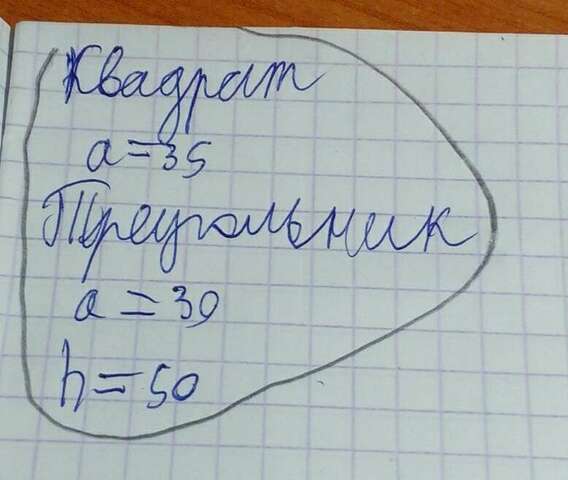 Квадрат
a=35
Треугольник
a=30
h=50